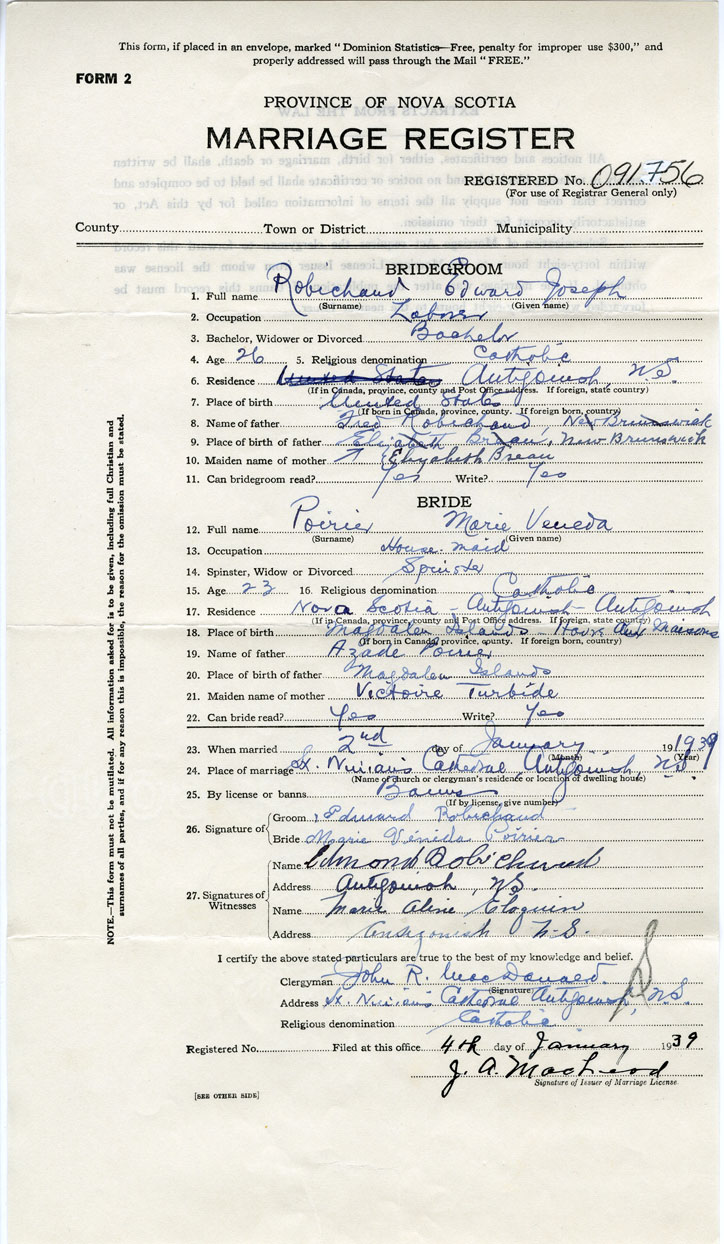 This form, if placed in an envelope, marked "Dominion Statistics—Free, penalty for improper use $300," and
properly addressed will pass through the Mail "FREE."
FORM 2
PROVINCE OF NOVA SCOTIA
MARRIAGE REGISTER
REGISTERED No. 091756
(For use of Registrar General only)
County Town or District Municipality
BRIDEGROOM
1. Full name Robichaud Edward Joseph
(Surname) (Given name)
2. Occupation Laborer
3. Bachelor, Widower or Divorced Bachelor
4. Age 26 5. Religious denomination Catholic
6. Residence United States Antigonish, N.S.
(If in Canada, province, county and Post Office address. If foreign, state country)
7. Place of birth United States
(If born in Canada, province, county. If foreign born, country)
8. Name of father Fred Robichaud, New Brunswick
9. Place of birth of father Elizabeth Breau, New Brunswick
10. Maiden name of mother Elizabeth Breau
11. Can bridegroom read? Yes Write? Yes
BRIDE
12. Full name Poirier Marie Veneda
(Surname) (Given name)
13. Occupation House-maid
14. Spinster, Widow or Divorced Spinster
15. Age 23 16. Religious denomination Catholic
17. Residence Nova Scotia - Antigonish - Antigonish
(If in Canada, province, county and Post Office address. If foreign, state country)
18. Place of birth Magdalen Islands - Havre Aux Maisons
(If born in Canada, province, county. If foreign born, country)
19. Name of father Azade Poirier
20. Place of birth of father Magdalen Islands
21. Maiden name of mother Victoire Turbide
22. Can bride read? Yes Write? Yes
23. When married 2nd day of January 19 1939
(Month) (Year)
24. Place of marriage St. Ninian's Cathedral, Antigonish, N.S.
(Name of church or clergyman's residence or location of dwelling house)
25. By license or banns Banns
(If by license, give number)
26. Signature of
Groom Edward Robichaud
Bride Marie Vénéda Poirier
27. Signatures of Witnesses
Name Edmond Robichaud
Address Antigonish, N.S.
Name Marie Aline Eloquin
Address Antigonish N.S.
I certify the above stated particulars are true to the best of my knowledge and belief.
Clergyman John R. MacDonald.
(Signature)
Address St. Ninian's Cathedral Antigonish, N.S.
Religious denomination Catholic
Registered No. Filed at this office 4th day of January 1939
J. A. MacLeod
Signature of Issuer of Marriage License
[SEE OTHER SIDE]
NOTE.—This form must not be mutilated. All information asked for is to be given, including full Christian and
surnames of all parties, and if for any reason this is impossible, the reason for the omission must be stated.